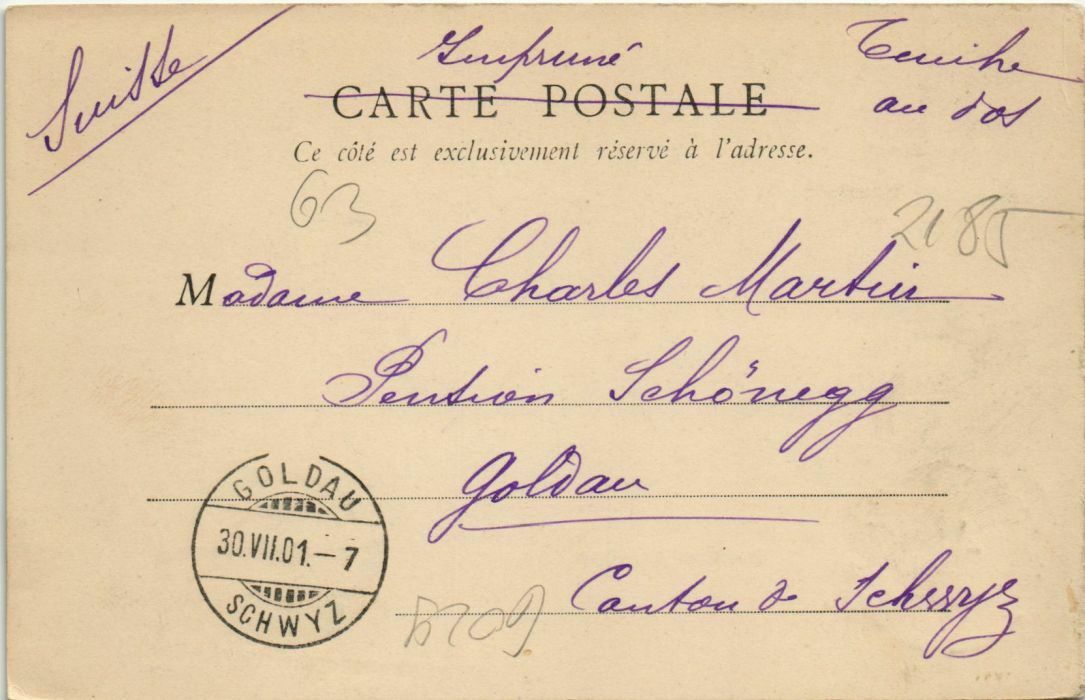 Suisse
Imprimé
Timbre
au dos
CARTE POSTALE
Ce côté est exclusivement réservé à l'adresse.
63
2185
Madame Charles Martin
Pension Schönegg
Goldau
GOLDAU
30.VII.01.-7
SCHWYZ
Canton de Schwyz